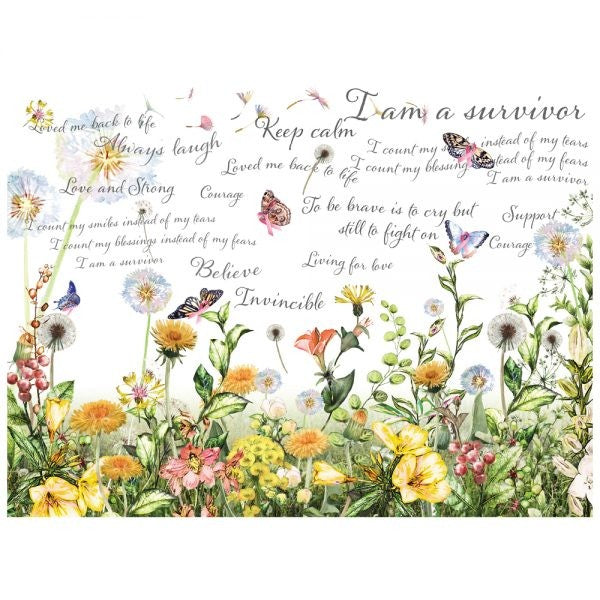 I am a survivor
Loved me back to life
Keep calm
Always laugh
I count my s instead of my tears
I count my blessing instead of my fears
I am a survivor
Loved me back to life
Love and Strong
Courage
To be brave is to cry but
still to fight on
Support
Courage
I count my smiles instead of my tears
I count my blessings instead of my fears
I am a survivor
Believe
Living for love
Invincible